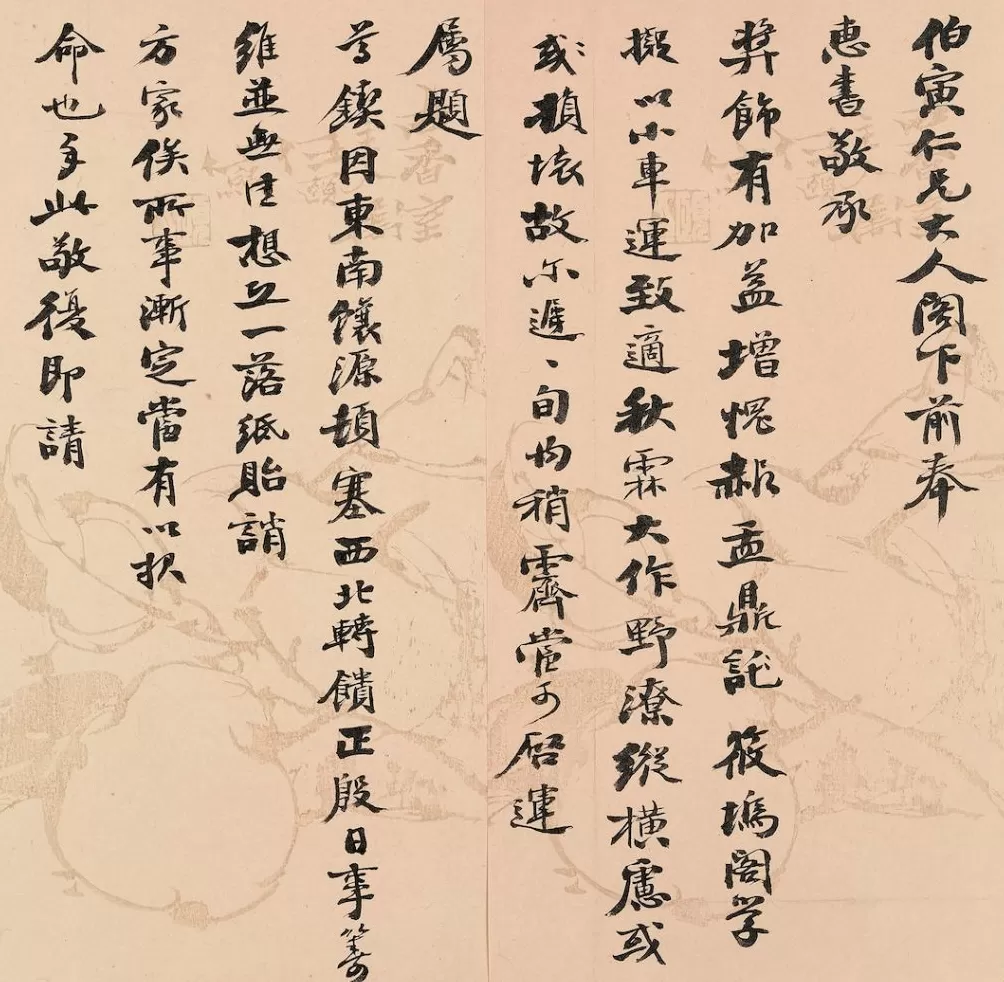 伯寅仁兄大人閣下前奉
惠書敬承
獎飾有加益增愧赧盂鼎託筱塢閣学
擬以小車運致適秋霖大作野潦縱橫慮或
或損壞故尔遲、旬稍霽當可啓運
屬題
尊鍥因東南饟源頓塞西北轉饋正殷日事籌
維並無佳想一落紙貽誚
方家俟所事漸定當有以报
命也手此敬復即請